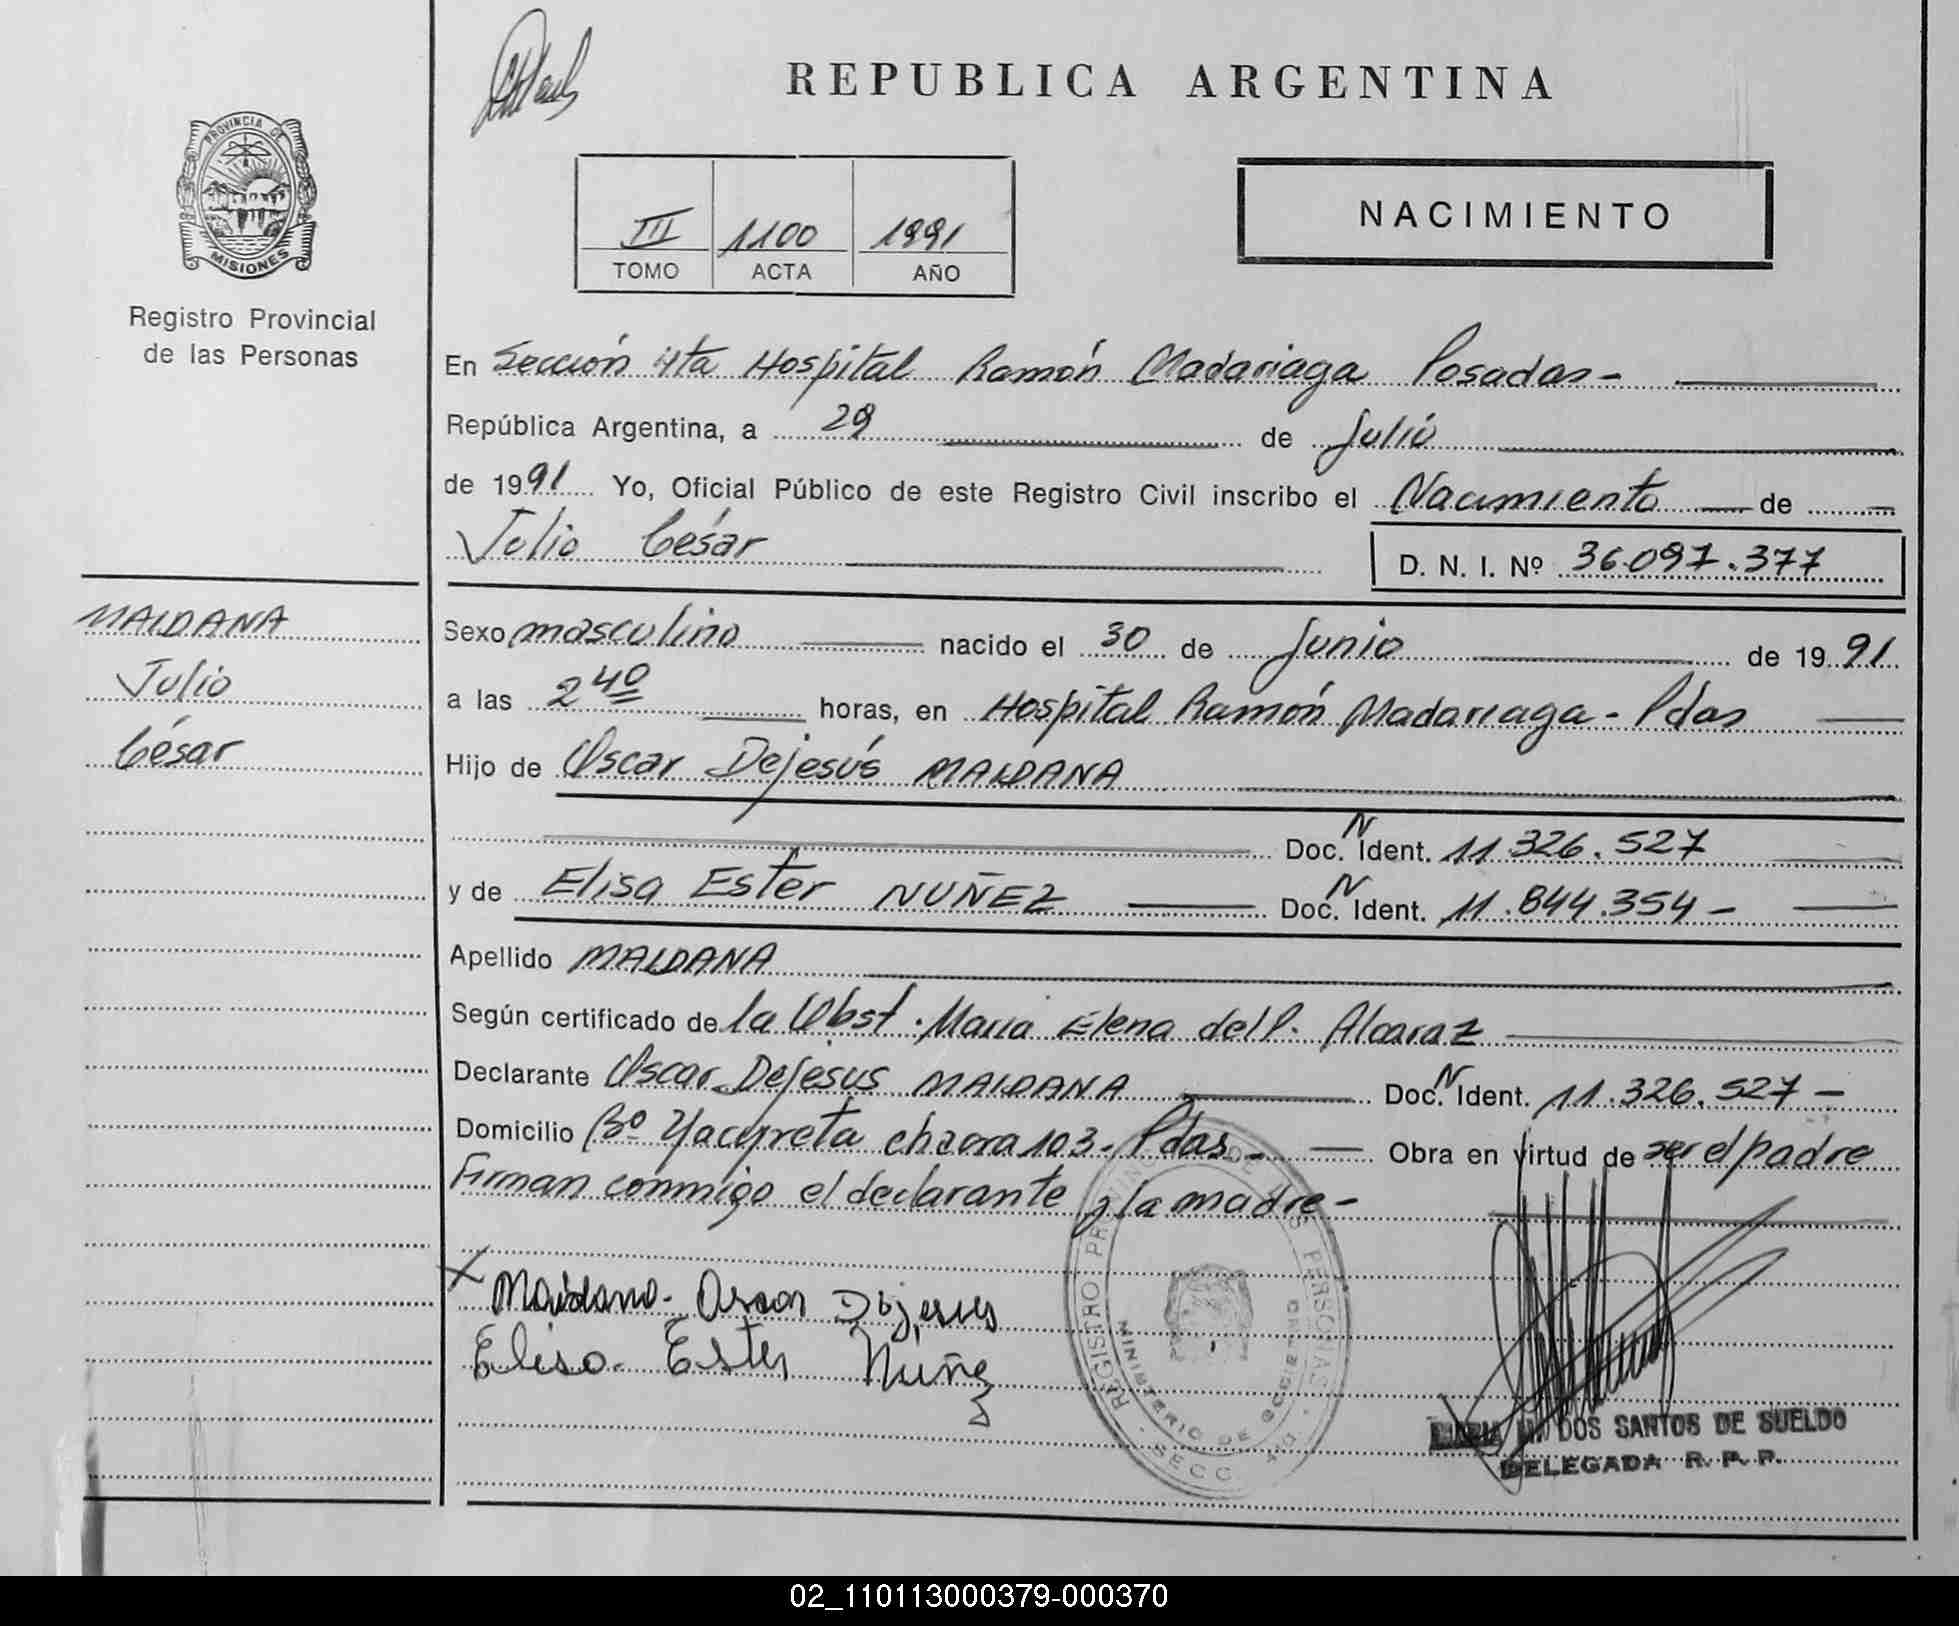 REPUBLICA ARGENTINA
PROVINCIA DE
MISIONES
Registro Provincial
de las Personas
III 1100 1991
TOMO ACTA AÑO
NACIMIENTO
En Sección 4ta Hospital Ramón Madariaga Posadas-
República Argentina, a 29 de Julio
de 1991 Yo, Oficial Público de este Registro Civil inscribo el Nacimiento de
Julio César
D. N. I. Nº 36.097.377
MALDANA
Julio
César
Sexo masculino nacido el 30 de Junio de 1991
a las 2 40 horas, en Hospital Ramón Madariaga - Pdas
Hijo de Oscar Dejesús MALDANA
Doc. N Ident. 11.326.527
y de Elisa Ester NUÑEZ Doc. N Ident. 11.844.354-
Apellido MALDANA
Según certificado de la Obst. Maria Elena del P. Alcaraz
Declarante Oscar Dejesus MALDANA Doc. N Ident. 11.326.527-
Domicilio Bº Yacyreta chacra 103- Pdas- Obra en virtud de ser el padre
Firman conmigo el declarante y la madre-
X Maidana- Oscar Dejesus
Elisa- Ester Núñez
REGISTRO PROVINCIAL DE LAS PERSONAS
MINISTERIO DE GOBIERNO
SECC. 4a
MARIA M. DOS SANTOS DE SUELDO
DELEGADA R. P. P.
02_110113000379-000370